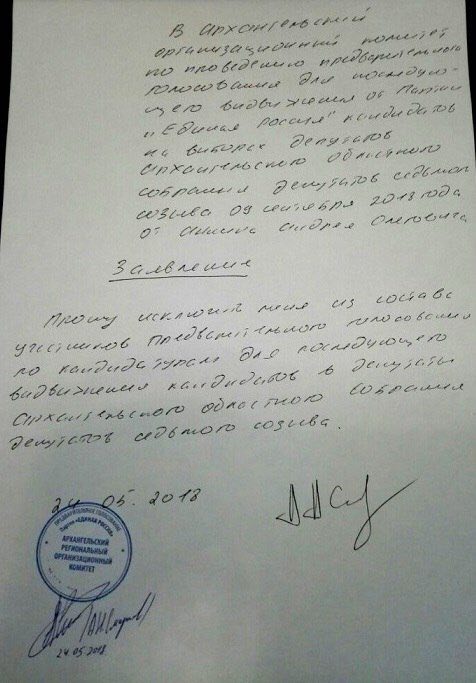 В Архангельский
организационный комитет
по проведению предварительного
голосования для последую-
щего выдвижения от Партии
"Единая Россия" кандидатов
на выборах депутатов
Архангельского областного
собрания депутатов седьмого
созыва 09 сентября 2018 года
от Анина Андрея Олеговича
Заявление
Прошу исключить меня из состава
участников Предварительного голосования
по кандидатурам для последующего
выдвижения кандидатов в депутаты
Архангельского областного собрания
депутатов седьмого созыва.
24 05. 2018
ПРЕДВАРИТЕЛЬНОЕ ГОЛОСОВАНИЕ
Партия «ЕДИНАЯ РОССИЯ»
АРХАНГЕЛЬСКИЙ
РЕГИОНАЛЬНЫЙ
ОРГАНИЗАЦИОННЫЙ
КОМИТЕТ
24.05.2018